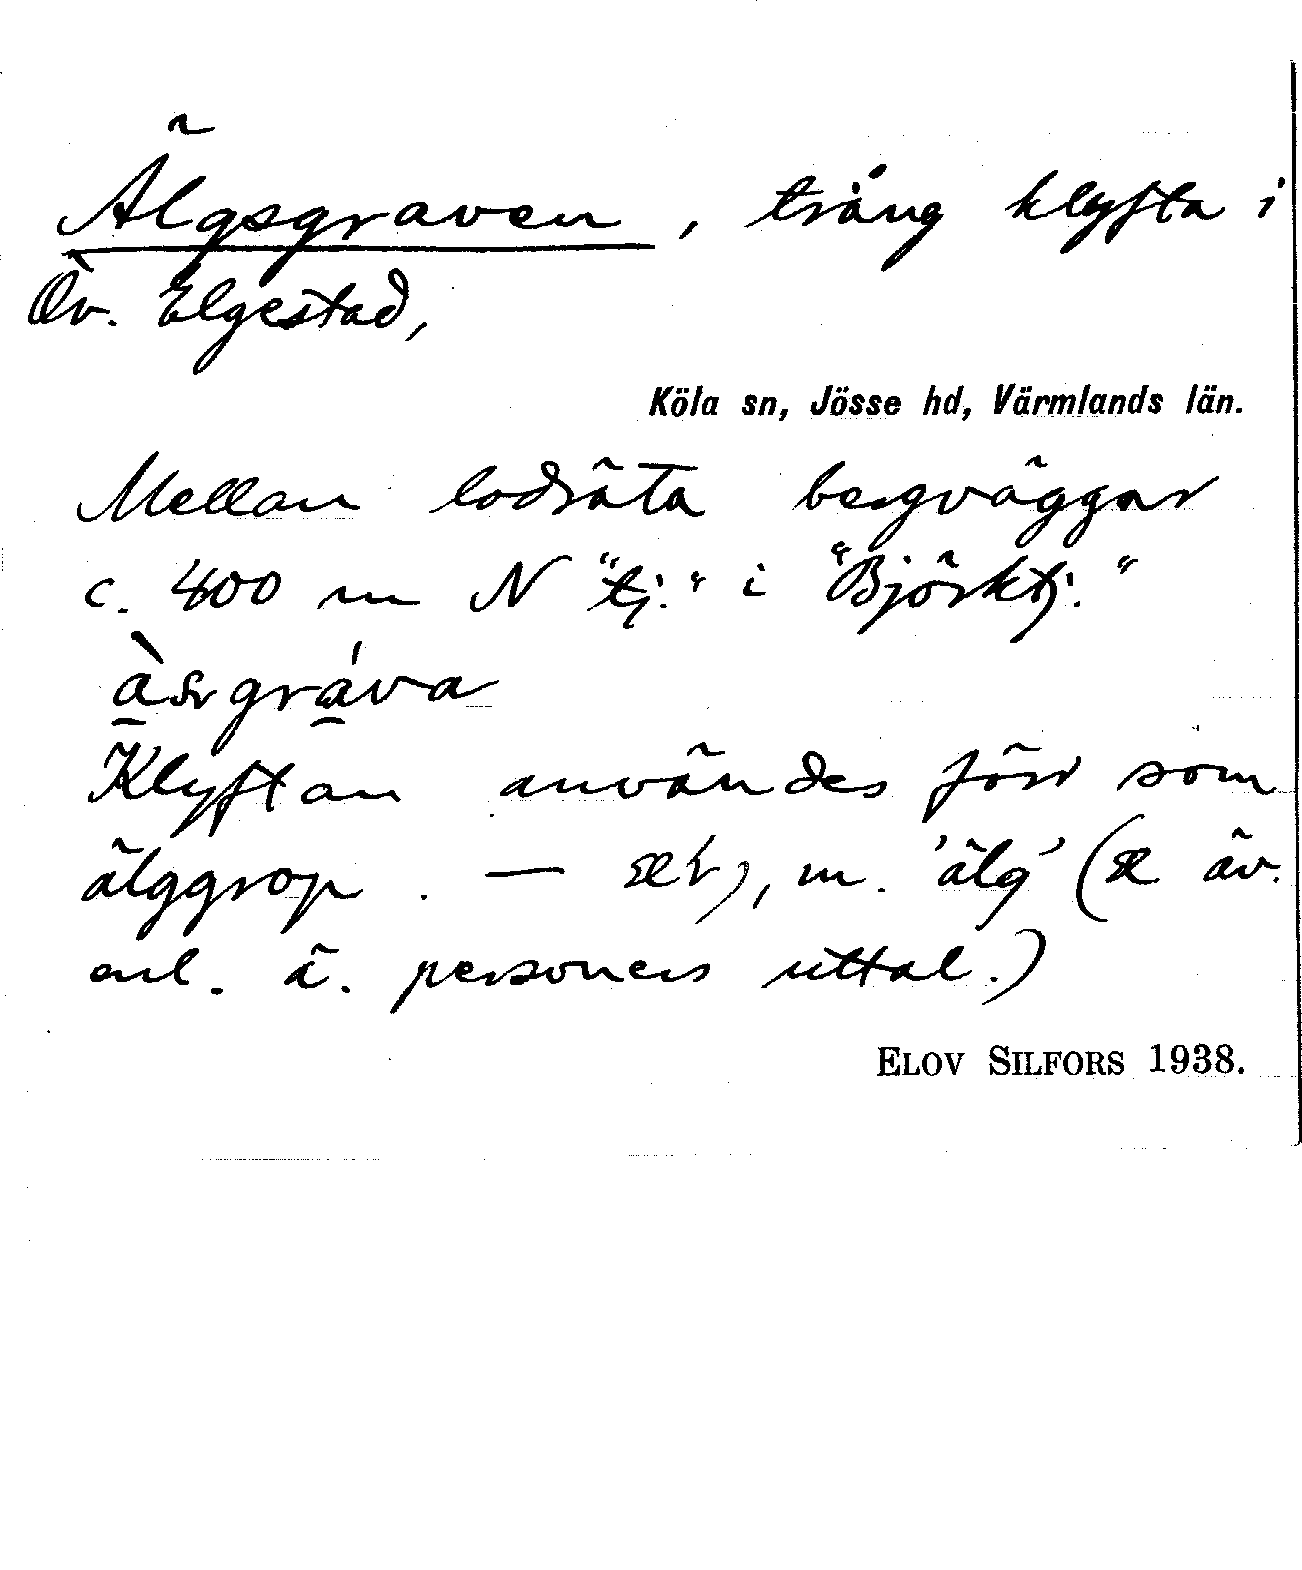 Älgsgraven, trång klyfta i
Öv. Elgestad,
Köla sn, Jösse hd, Värmlands län.
Mellan lodräta bergväggar
c. 400 m N "tj." i "Björktj."
Klyftan användes förr som
älggrop. — m. 'älg' (æ äv.
enl. ä. personers uttal.)
ELOV SILFORS 1938.